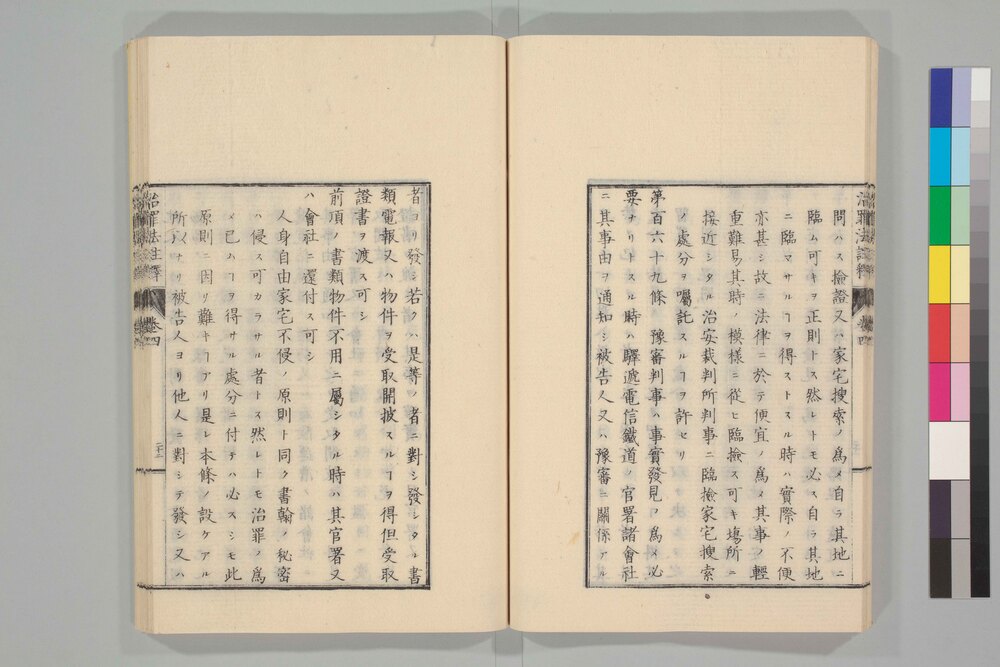 問ハス撿證又ハ家宅搜索ノ爲メ自ラ其地ニ
臨ム可キヲ正則トス然レトモ必ス自ラ其地
ニ臨マサルヿヲ得ストスル時ハ實際ノ不便
亦甚シ故ニ法律ニ於テ便宜ノ爲メ其事ノ輕
重難易其時ノ模樣ニ從ヒ臨撿ス可キ塲所ニ
接近シタル治安裁判所判事ニ臨撿家宅搜索
ノ處分ヲ囑託スルヿヲ許セリ
第百六十九條 豫審判事ハ事實發見ノ爲メ必
要ナリトスル時ハ驛遞電信鐵道ノ官署諸會社
ニ其事由ヲ通知シ被告人又ハ豫審ニ關係アル
者ヨリ發シ若クハ是等ノ者ニ對シ發シタル書
類電報又ハ物件ヲ受取開披スルヿヲ得但受取
證書ヲ渡ス可シ
前項ノ書類物件不用ニ屬シタル時ハ其官署又
ハ會社ニ還付ス可シ
人身自由家宅不侵ノ原則ト同ク書翰ノ秘密
ハ侵ス可カラサル者トス然レトモ治罪ノ爲
メ已ムヿヲ得サル處分ニ付テハ必スシモ此
原則ニ因リ難キヿアリ是レ本條ノ設ケアル
所以ナリ被告人ヨリ他人ニ對シテ發シ又ハ
治罪法註釋 卷四